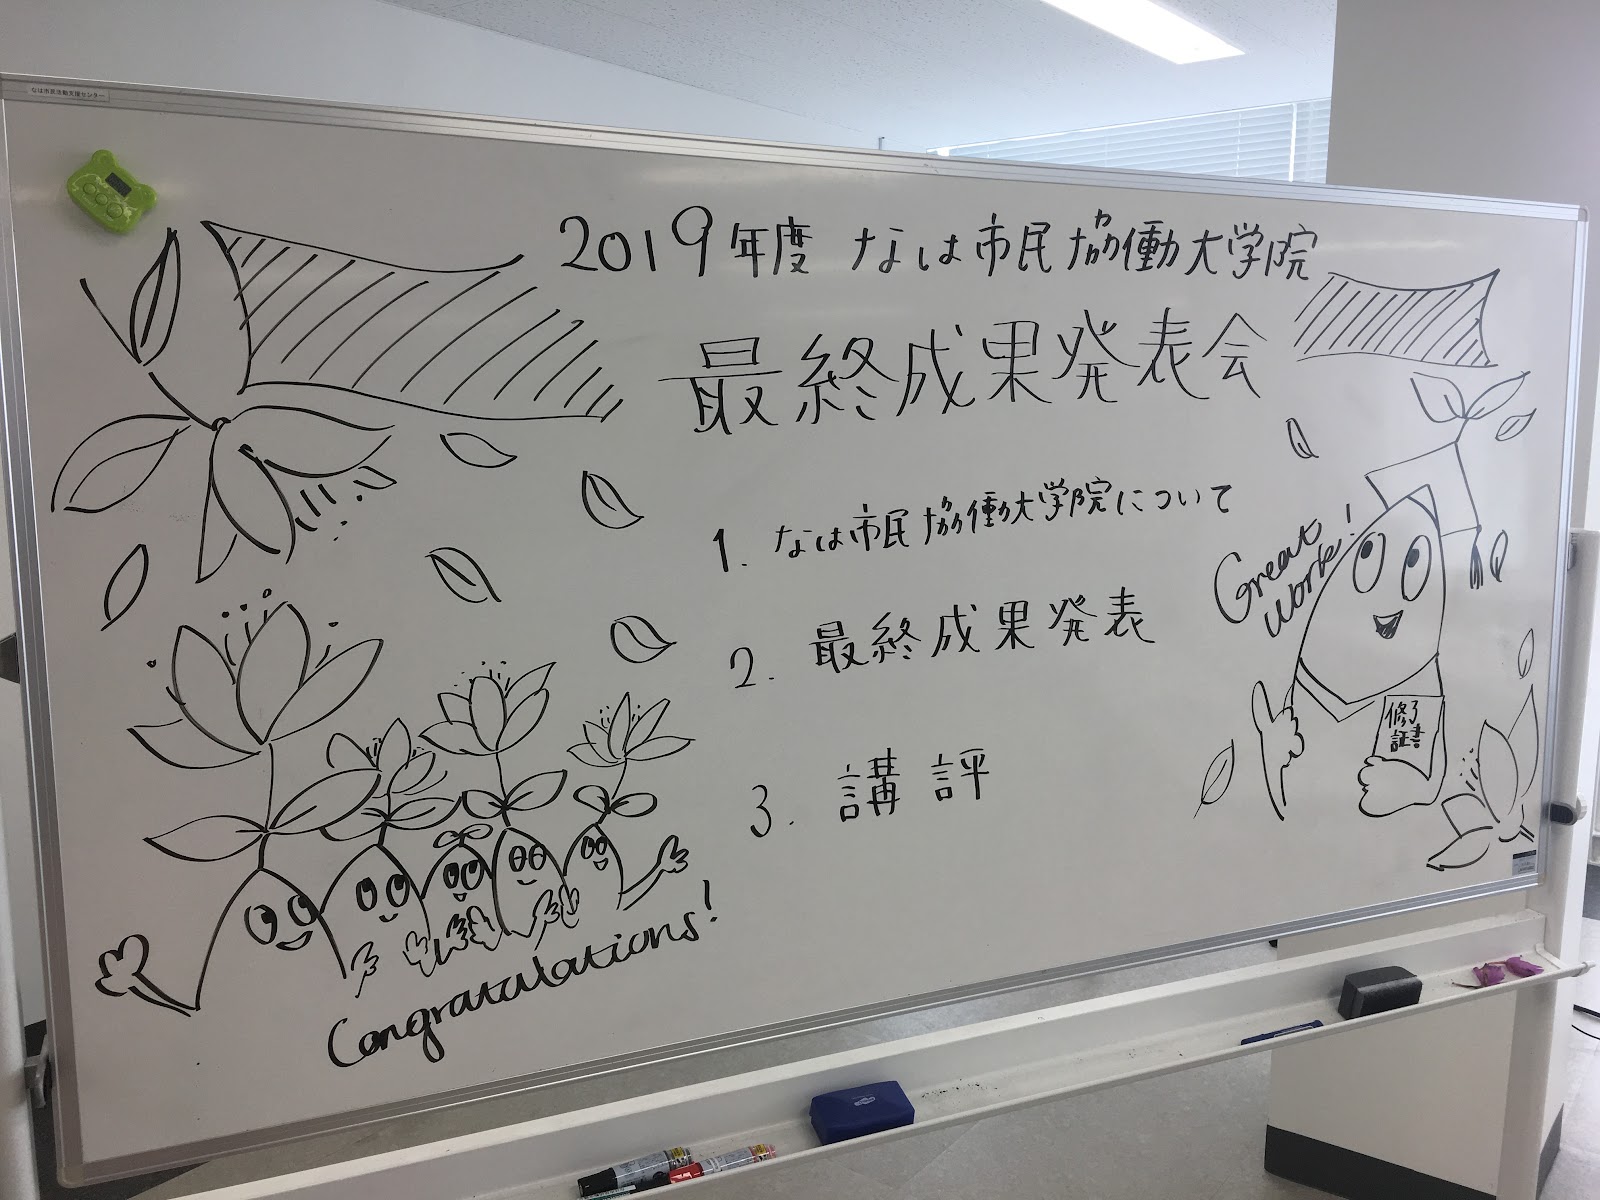 なは市民活動支援センター
2019年度 なは市民協働大学院
最終成果発表会
1. なは市民協働大学院について
2. 最終成果発表
3. 講評
Great
Work!
修了
証書
Congratulations!